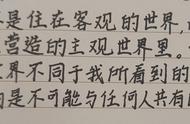 是住在客观的世界,
营造的主观世界里。
界不同于我所看到的
是不可能与任何人共有